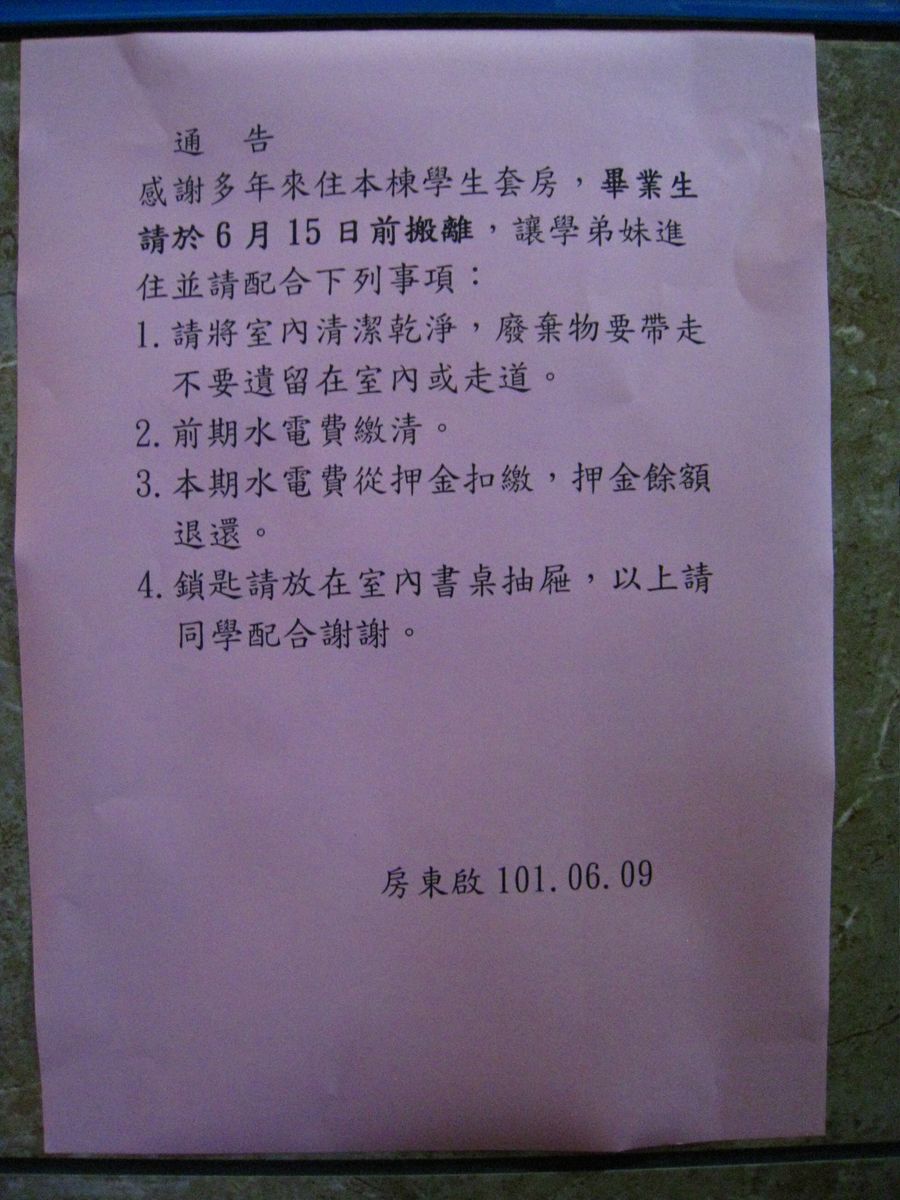 通 告
感謝多年來住本棟學生套房，畢業生
請於6月15日前搬離，讓學弟妹進
住並請配合下列事項：
1.請將室內清潔乾淨，廢棄物要帶走
不要遺留在室內或走道。
2.前期水電費繳清。
3.本期水電費從押金扣繳，押金餘額
退還。
4.鎖匙請放在室內書桌抽屜，以上請
同學配合謝謝。
房東啟101.06.09